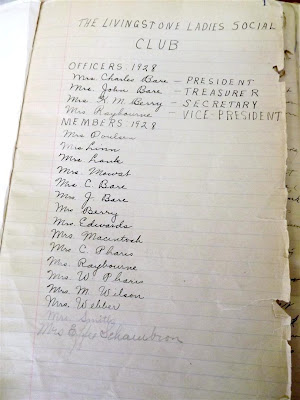 1
THE LIVINGSTONE LADIES SOCIAL
CLUB
OFFICERS: 1928
Mrs. Charles Bare - PRESIDENT
Mrs. John Bare - TREASURER
Mrs. K. M. Berry - SECRETARY
Mrs. Raybourne - VICE-PRESIDENT
MEMBERS: 1928
Mrs Poulsen
Mrs Linn
Mrs Lank
Mrs. Mowat
Mrs C. Bare
Mrs J. Bare
Mrs Berry
Mrs Edwards
Mrs. Macintosh
Mrs. C. Phares
Mrs. Raybourne
Mrs. W. Phares
Mrs. M. Wilson
Mrs. Webber
Mrs. Smith
Mrs